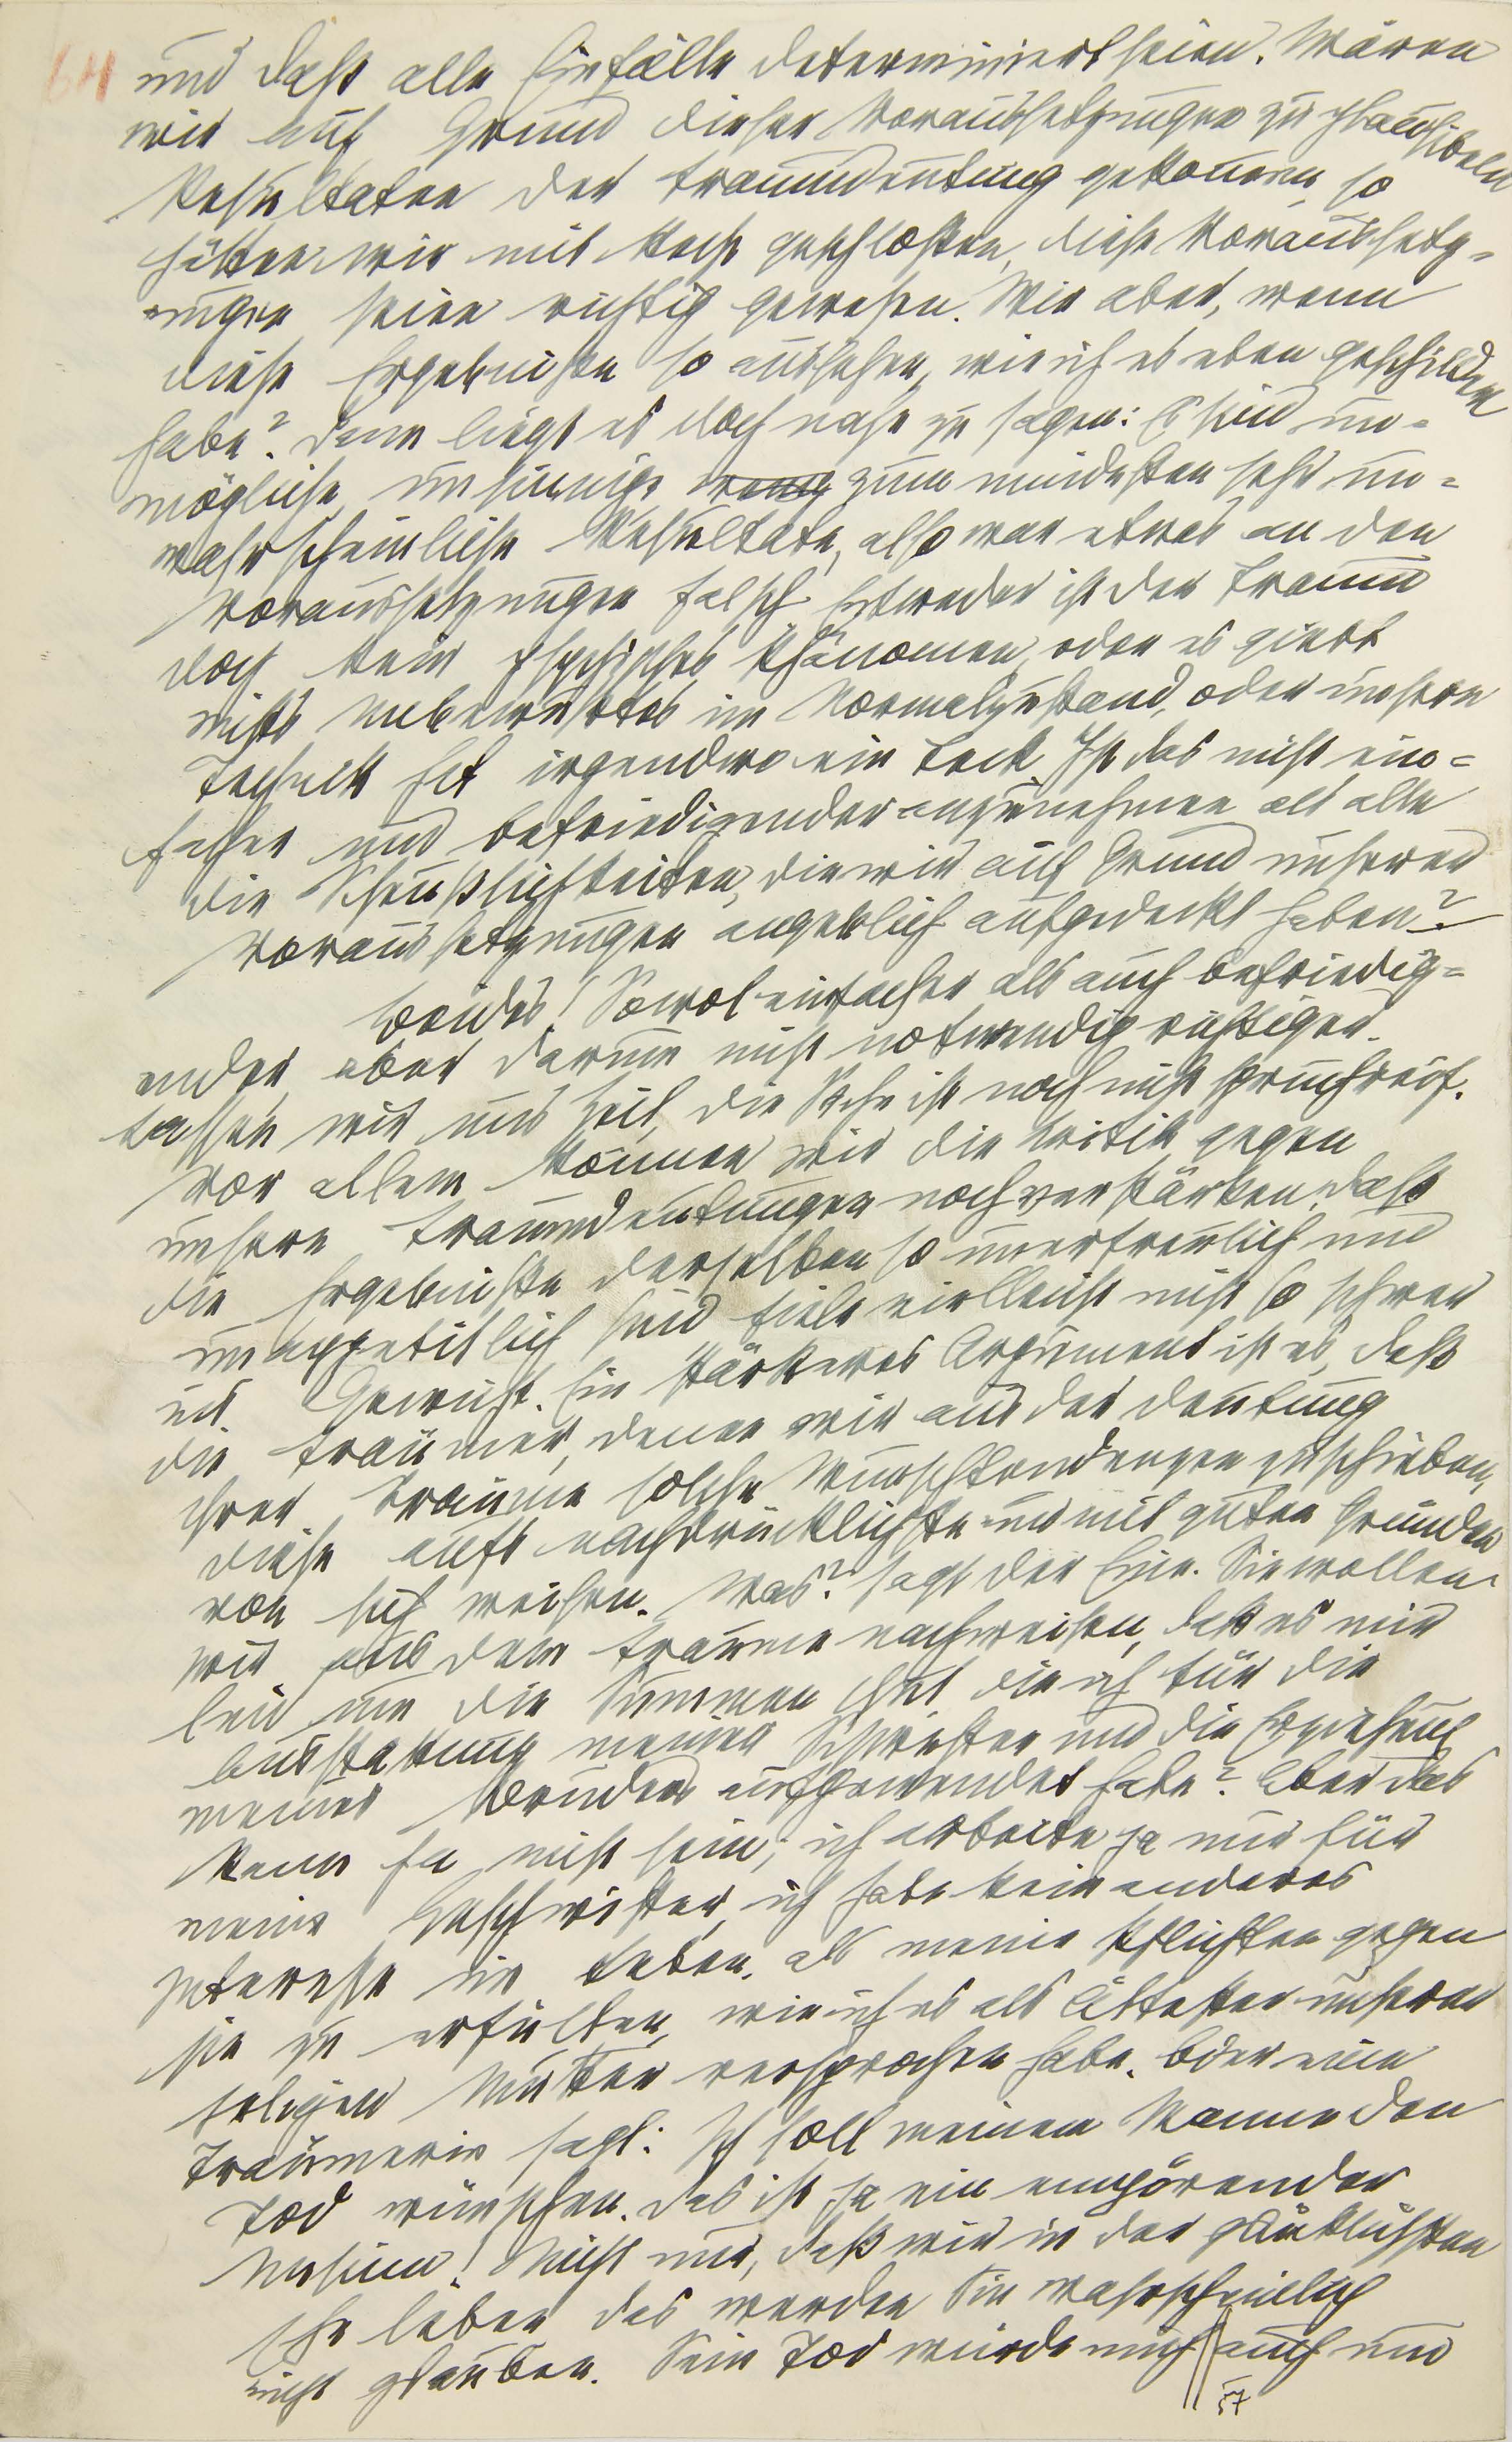 64
und daß alle Einfälle determiniert seien. Wären
wir auf Grund dieser Voraussetzungen zu plausibeln
Resultaten der Traumdeutung gekommen, so
hätten wir mit Recht geschlossen, diese Voraussetz-
ungen seien richtig gewesen. Wie aber, wenn
diese Ergebnisse so aussehen, wie ich es eben geschildert
habe? Dann liegt es doch nahe zu sagen: Es sind un-
mögliche, unsinnige zum mindesten sehr un-
wahrscheinliche Resultate, also war etwas an den
Voraussetzungen falsch. Entweder ist der Traum
doch kein psychisches Phänomen, oder es giebt
nichts Unbewußtes im Normalzustand, oder unsere
Technik hat irgendwo ein Leck. Ist das nicht ein-
facher und befriedigender anzunehmen als alle
die Scheußlichkeiten, die wir auf Grund unserer
Voraussetzungen angeblich aufgedeckt haben?
Beides! Sowol einfacher als auch befriedig-
ender, aber darum nicht notwendig richtiger.
Lassen wir uns Zeit, die Sache ist noch nicht spruchreif.
Vor allem können wir die Kritik gegen
unsere Traumdeutungen noch verstärken. Daß
die Ergebnisse derselben so unerfreulich und
unappetitlich sind, fiele vielleicht nicht so schwer
ins Gewicht. Ein stärkeres Argument ist es, daß
die Träumer, denen wir aus der Deutung
ihrer Träume solche Wunschtendenzen zuschieben,
diese aufs nachdrücklichste und mit guten Gründen
von sich weisen. Was? sagt der Eine. Sie wollen
mir aus dem Traume nachweisen, daß es mir
leid um die Summen thut, die ich für die
Ausstattung meiner Schwester und die Erziehung
meines Bruders aufgewendet habe? Aber das
kann ja nicht sein; ich arbeite ja nur für
meine Geschwister, ich habe kein anderes
Interesse im Leben, als meine Pflichten gegen
sie zu erfüllen, wie ich es als Ältester unserer
seligen Mutter versprochen habe. Oder eine
Träumerin sagt: Ich soll meinem Manne den
Tod wünschen. Das ist ja ein empörender
Unsinn! Nicht nur, daß wir in der glücklichsten
Ehe leben, das werden Sie wahrscheinlich
nicht glauben. Sein Tod würde mich auch um
57